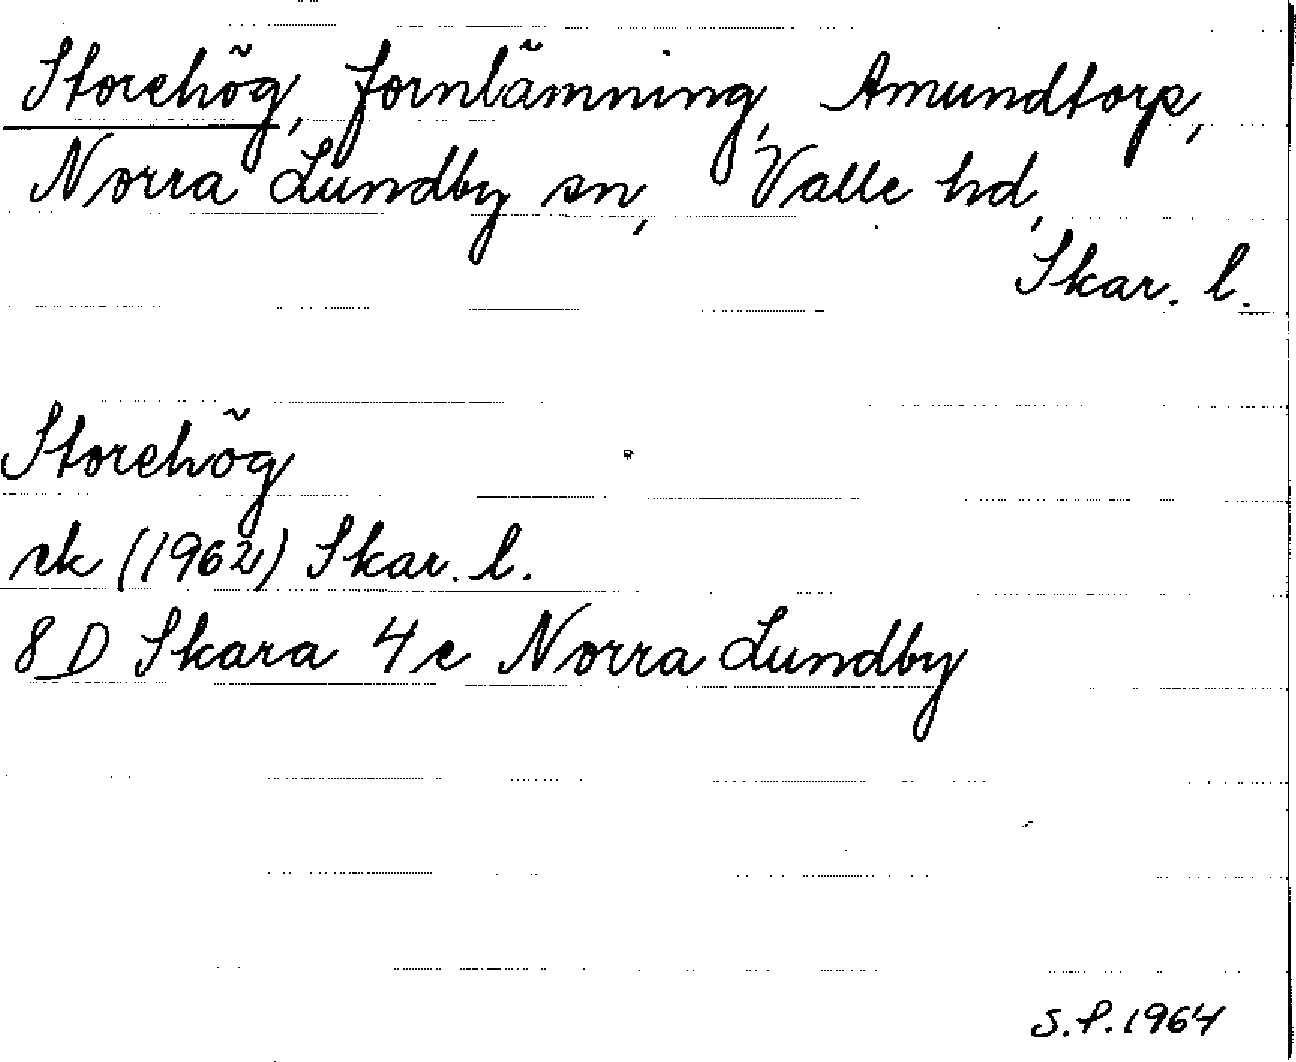 Storehög, fornlämning, Amundtorp,
Norra Lundby sn, Valle hd,
Skar. l.
Storehög
rk (1962) Skar. l.
8D Skara 4e Norra Lundby
S.P. 1964